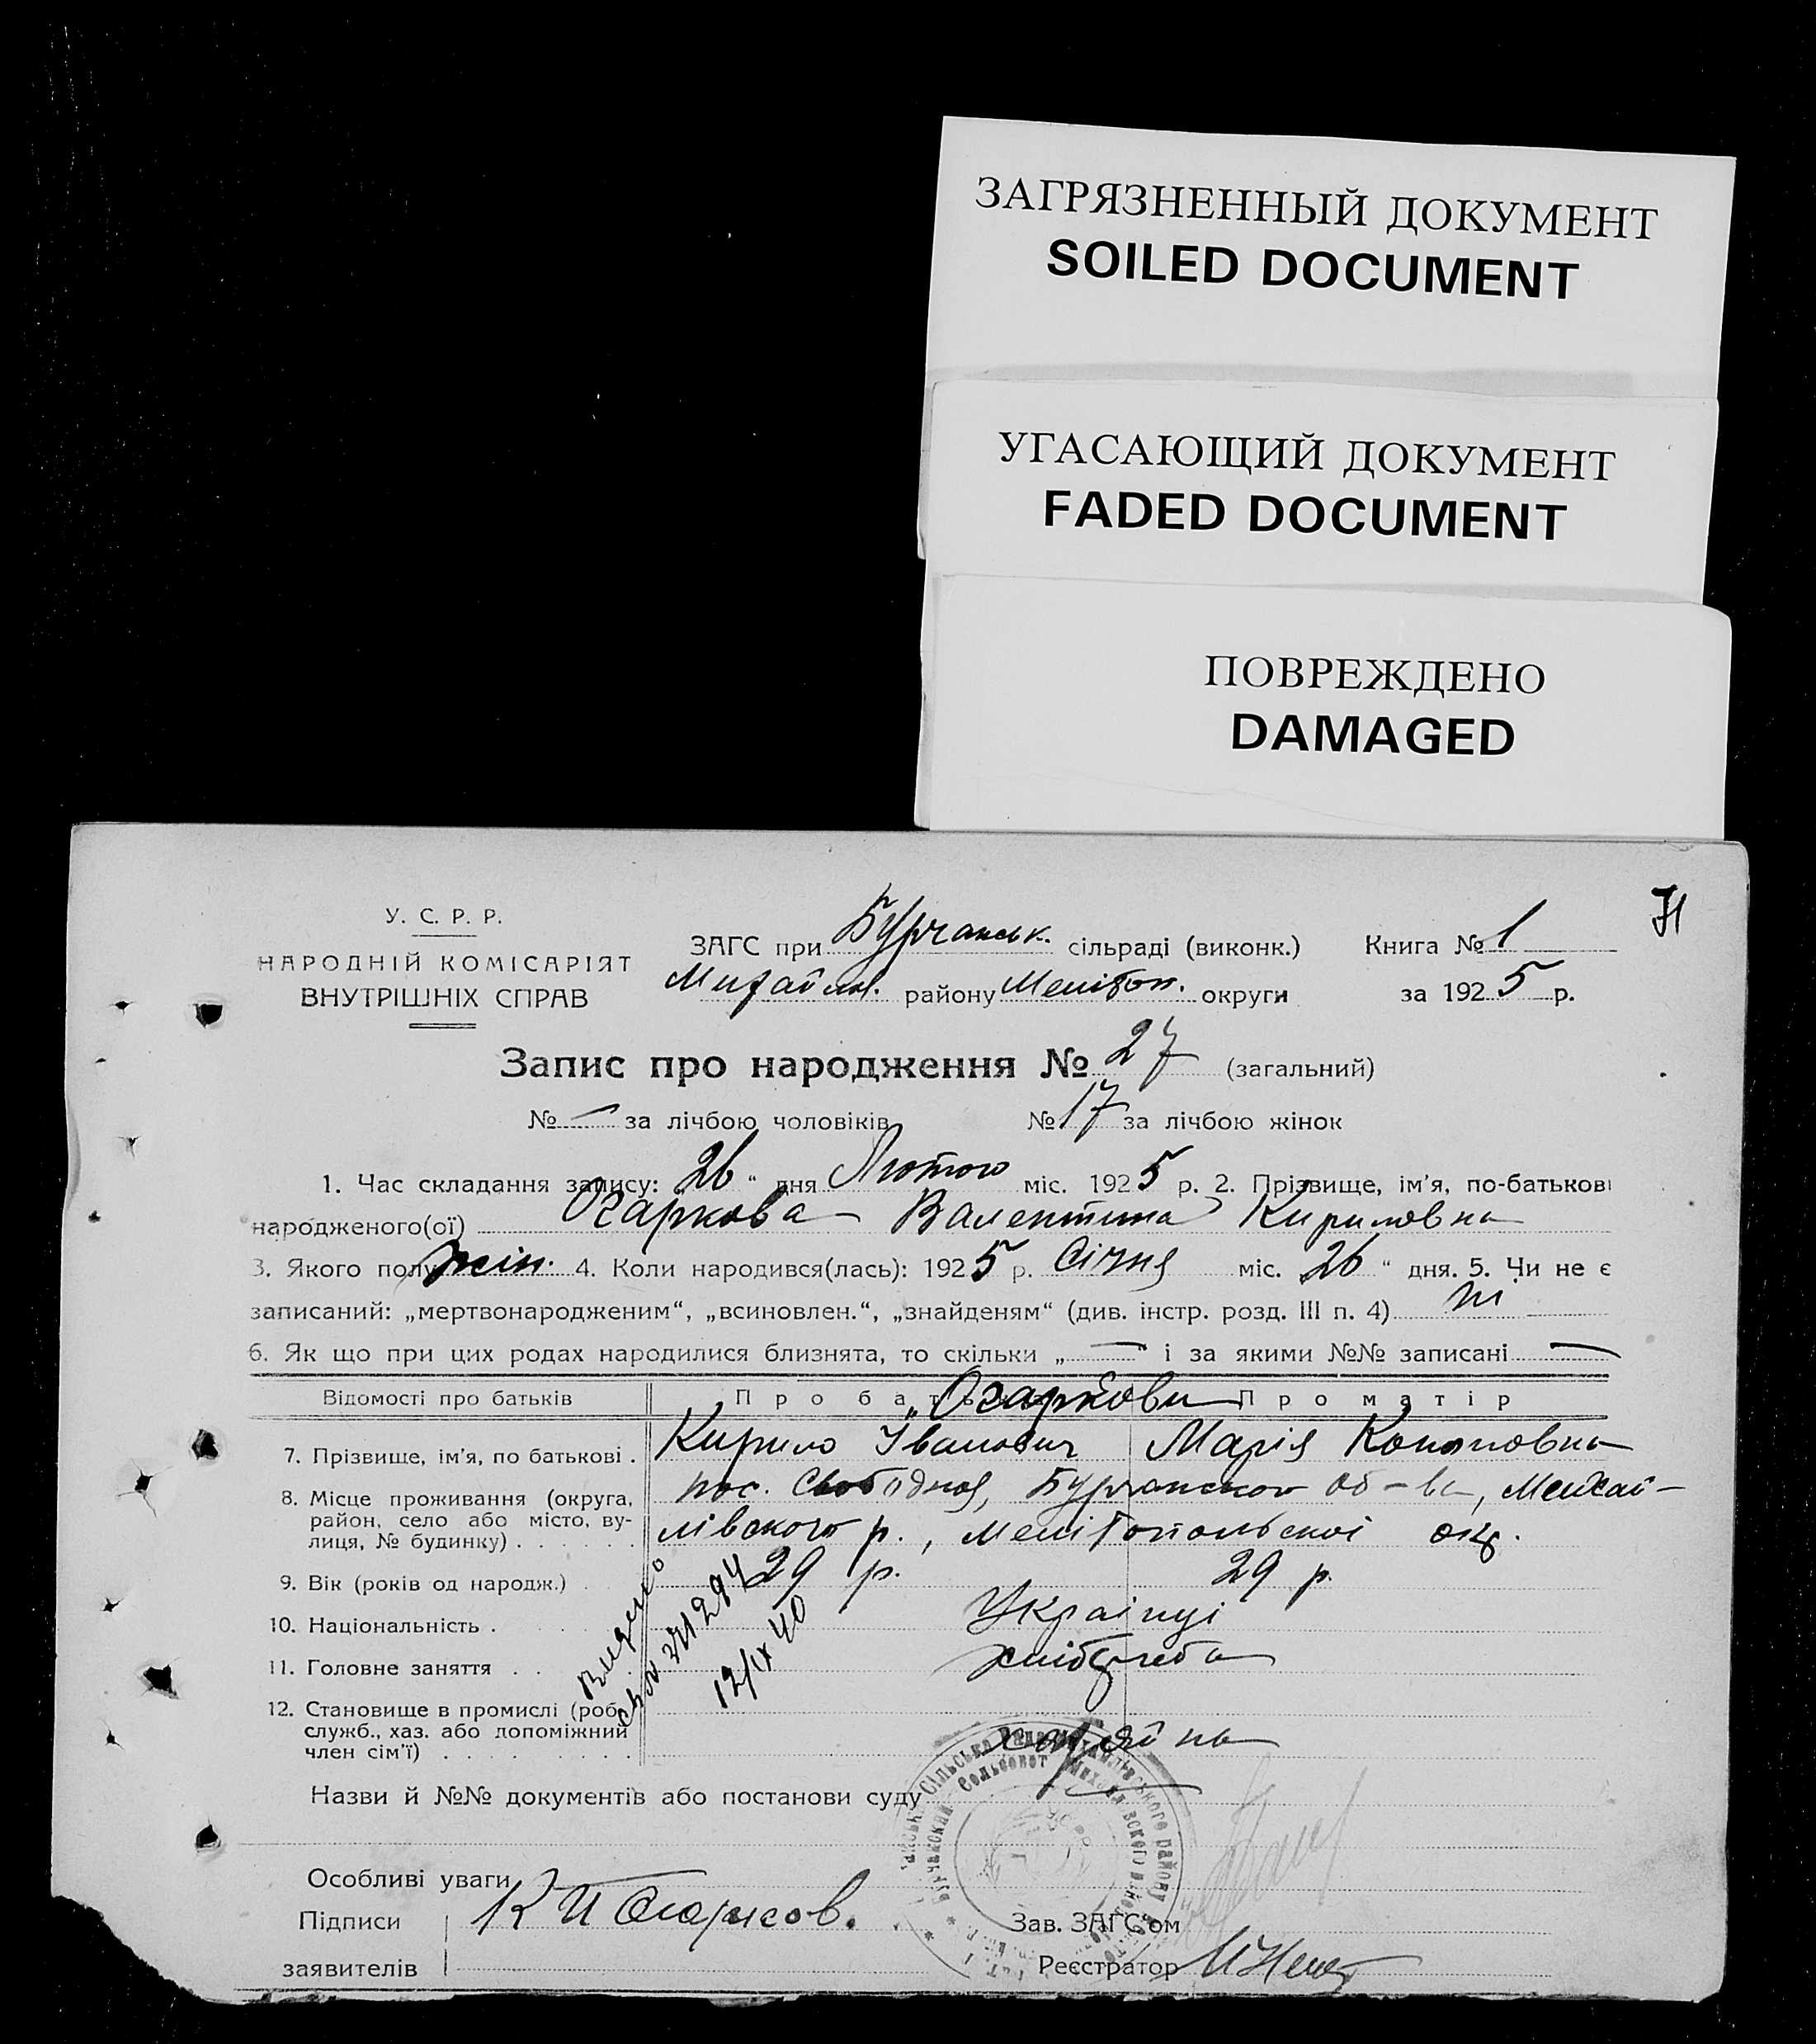 ЗАГРЯЗНЕННЫЙ ДОКУМЕНТ
SOILED DOCUMENT
УГАСАЮЩИЙ ДОКУМЕНТ
FADED DOCUMENT
ПОВРЕЖДЕНО
DAMAGED
71
У. С. Р. Р.
НАРОДНІЙ КОМІСАРІЯТ
ВНУТРІШНІХ СПРАВ
ЗАГС при Бурчанськ. сільраді (виконк.) Книга № 1
Михайлів. району Мелітоп. округи за 1925 р.
Запис про народження № 27 (загальний)
№ — за лічбою чоловіків № 17 за лічбою жінок
1. Час складання запису: „26“ дня Лютого міс. 1925 р. 2. Прізвище, ім’я, по-батькові
народженого(ої) Огаркова Валентина Кириловна
3. Якого полу жін. 4. Коли народився(лась): 1925 р. Січня міс. „26“ дня. 5. Чи не є
записаний: „мертвонародженим“, „всиновлен.“, „знайденям“ (див. інстр. розд. III п. 4) ні
6. Як що при цих родах народилися близнята, то скільки „—“ і за якими №№ записані —
Відомості про батьків Про батька Огаркови Про матір
7. Прізвище, ім’я, по батькові . Кирило Іванович Марія Кононовна
8. Місце проживання (округа, район, село або місто, вулиця, № будинку) . . . . . . пос. Свободная, Бурчанского об-ва, Михай-
лівского р., Мелітопольскої окр.
9. Вік (років од народж.) . 29 р. 29 р.
10. Національність . Українці
11. Головне заняття . . хлібороба
12. Становище в промислі (роб., служб., хаз. або допоміжний член сім’ї) . . . . . . . . . хазяїна
Видано
св. № 371294
12/IX 40
Назви й №№ документів або постанови суду
Особливі уваги
Підписи
заявителів
К И Огарков.
Зав. ЗАГС'ом
Реєстратор